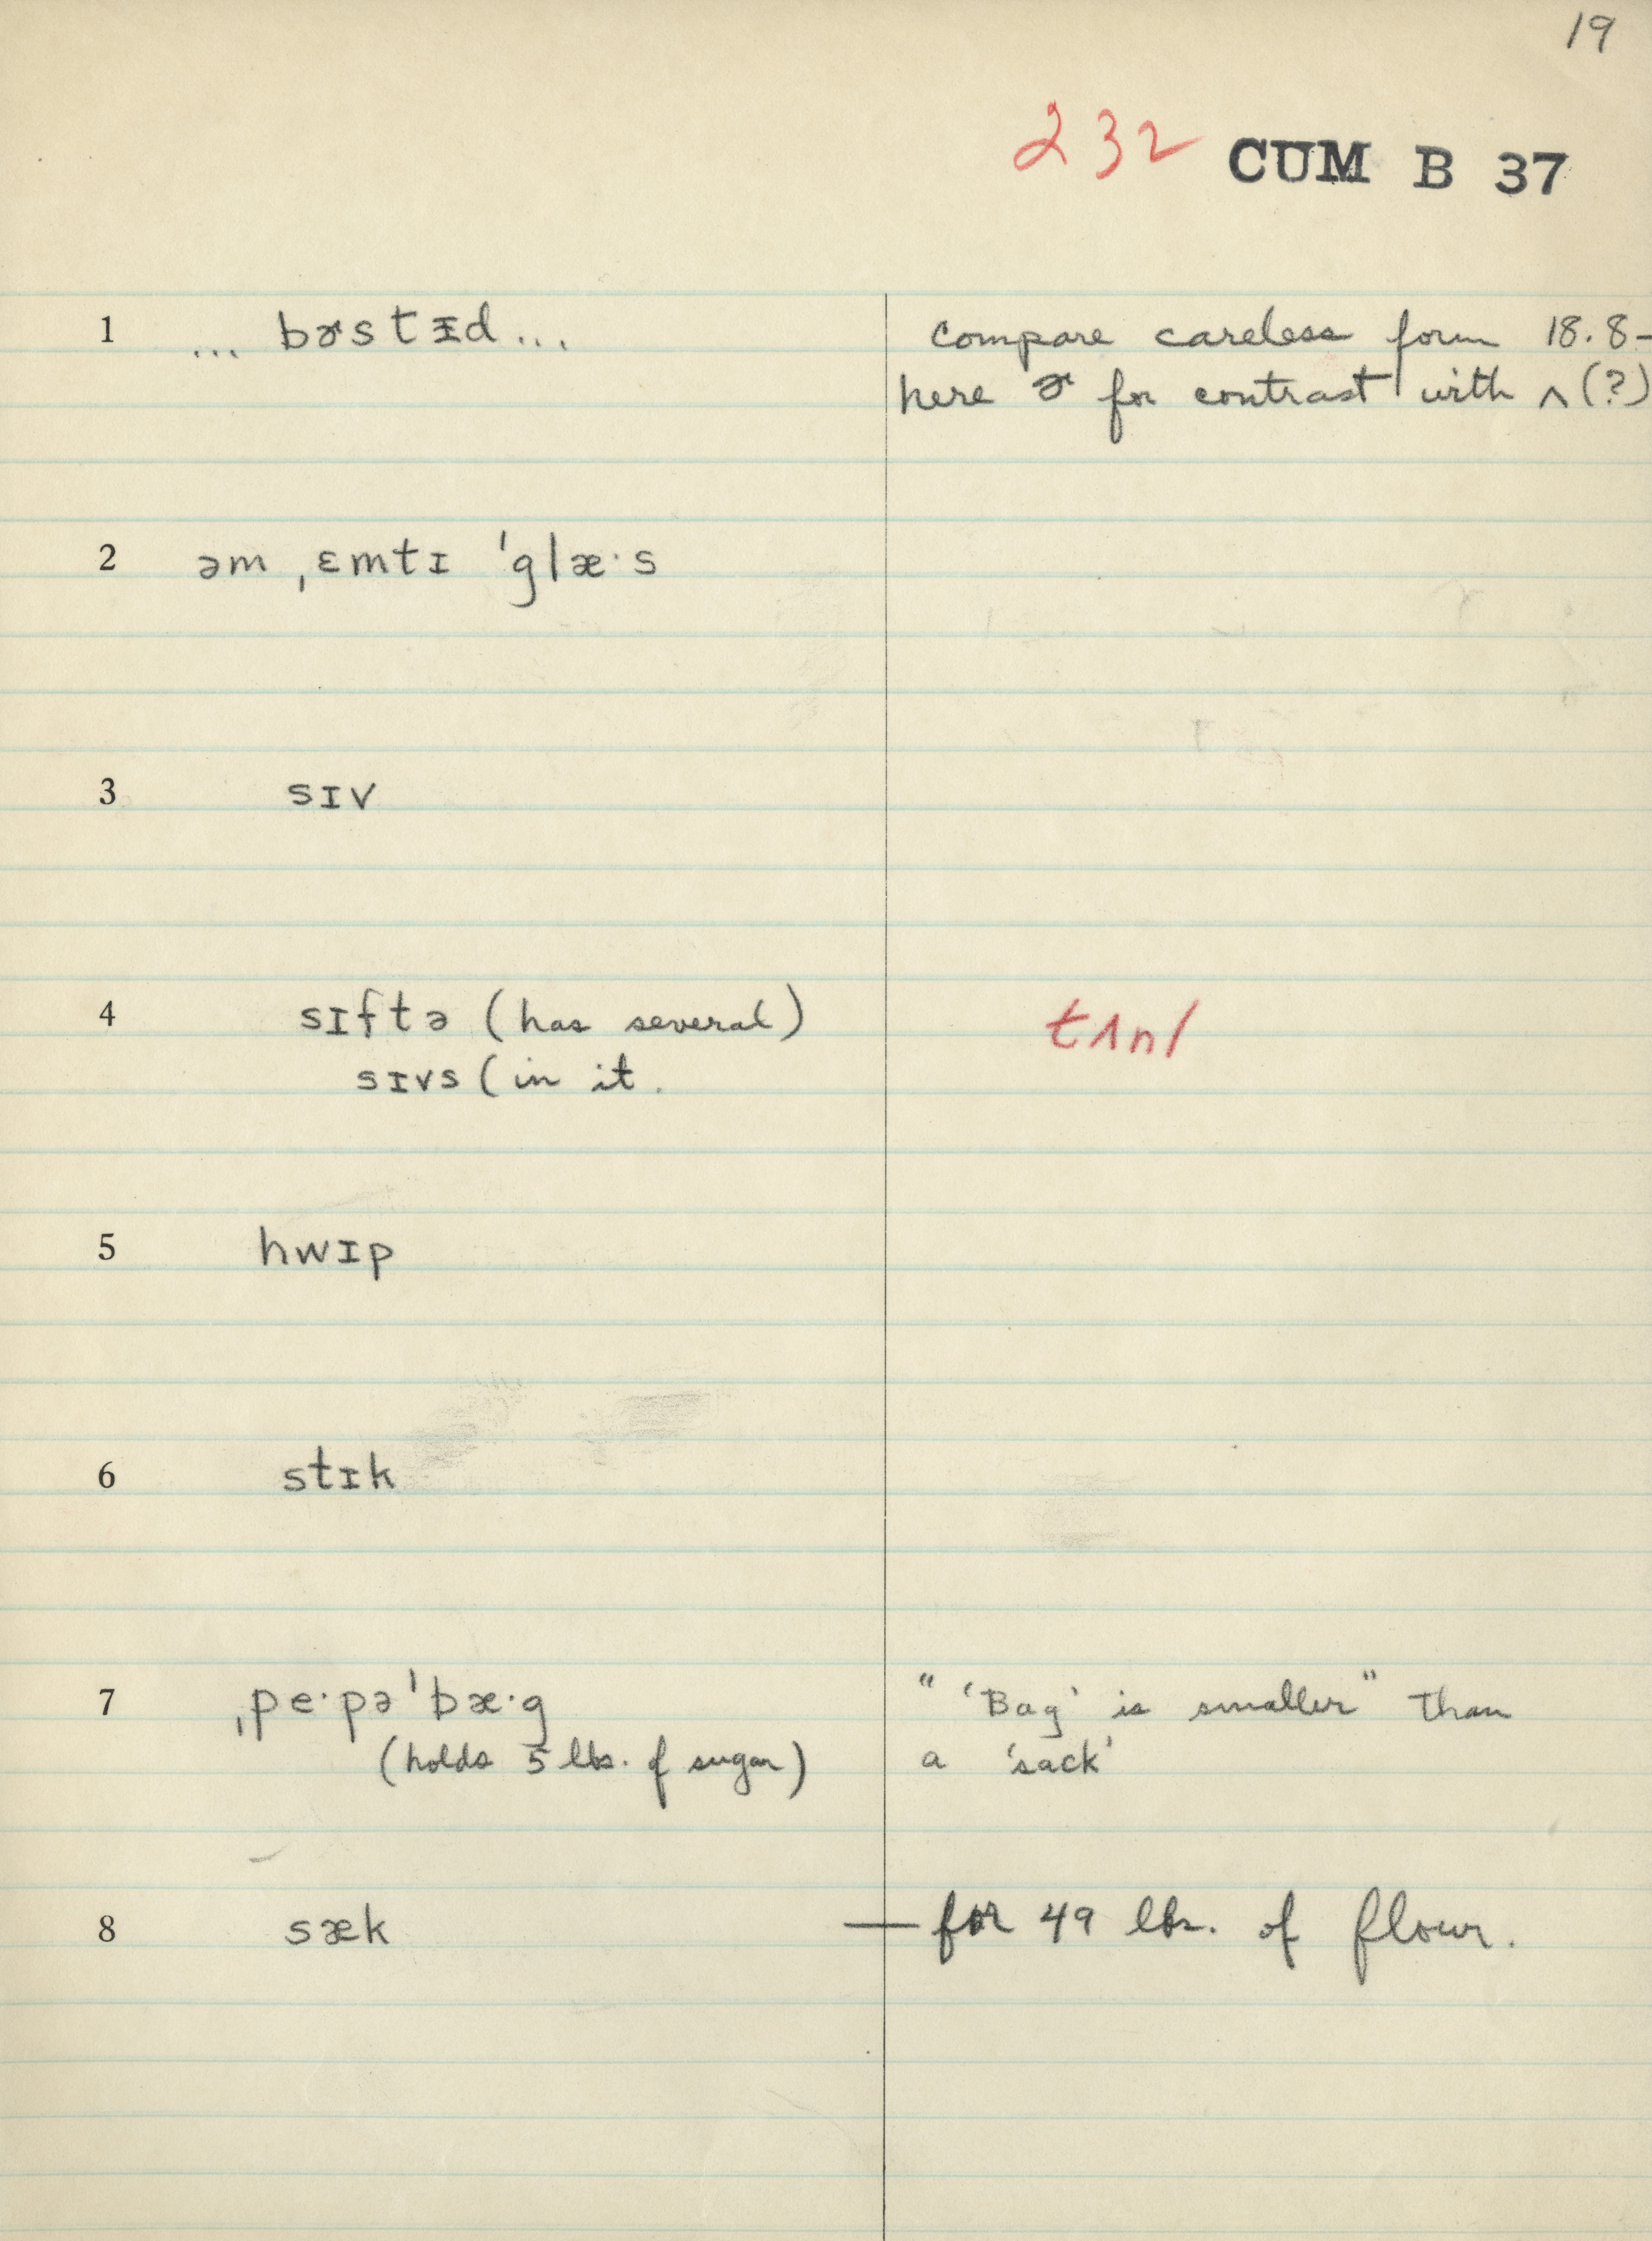 19
232 CUM B 37
1 ... bɚstᵻd... Compare careless form 18.8-
here ɚ for contrast with ʌ (?)
2 əm ˌɛmtɪ ˈglæ·s
3 sɪv
4 sɪftə (has several) tʌnl
sɪvs (in it.
5 hwɪp
6 stɪk
7 ˌpe·pəˈbæ·g " 'Bag' is smaller" than
(holds 5 lbs. of sugar) a 'sack'
8 sæk — for 49 lbs. of flour.